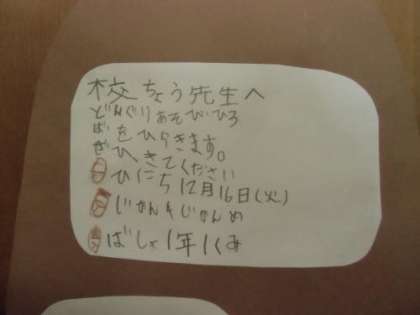 校ちょう先生へ
どんぐりあそびひろ
ばをひらきます。
ぜひ、きてください
ひにち12月16日(火)
じかん4じかんめ
ばしょ1年1くみ